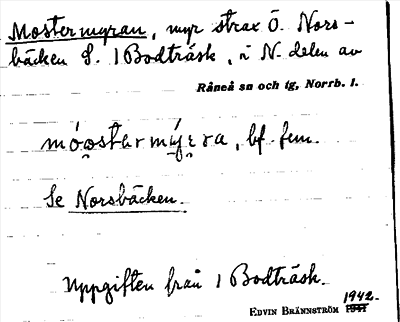 Mostermyran, myr strax Ö. Nors-
bäcken S. 1 Bodträsk, i N. delen av
Råneå sn och tg, Norrb. l.
móo̯starmýɛ̯ra, bf. fem.
Se Norsbäcken.
Uppgiften från 1 Bodträsk.
1942.
EDVIN BRÄNNSTRÖM 1941